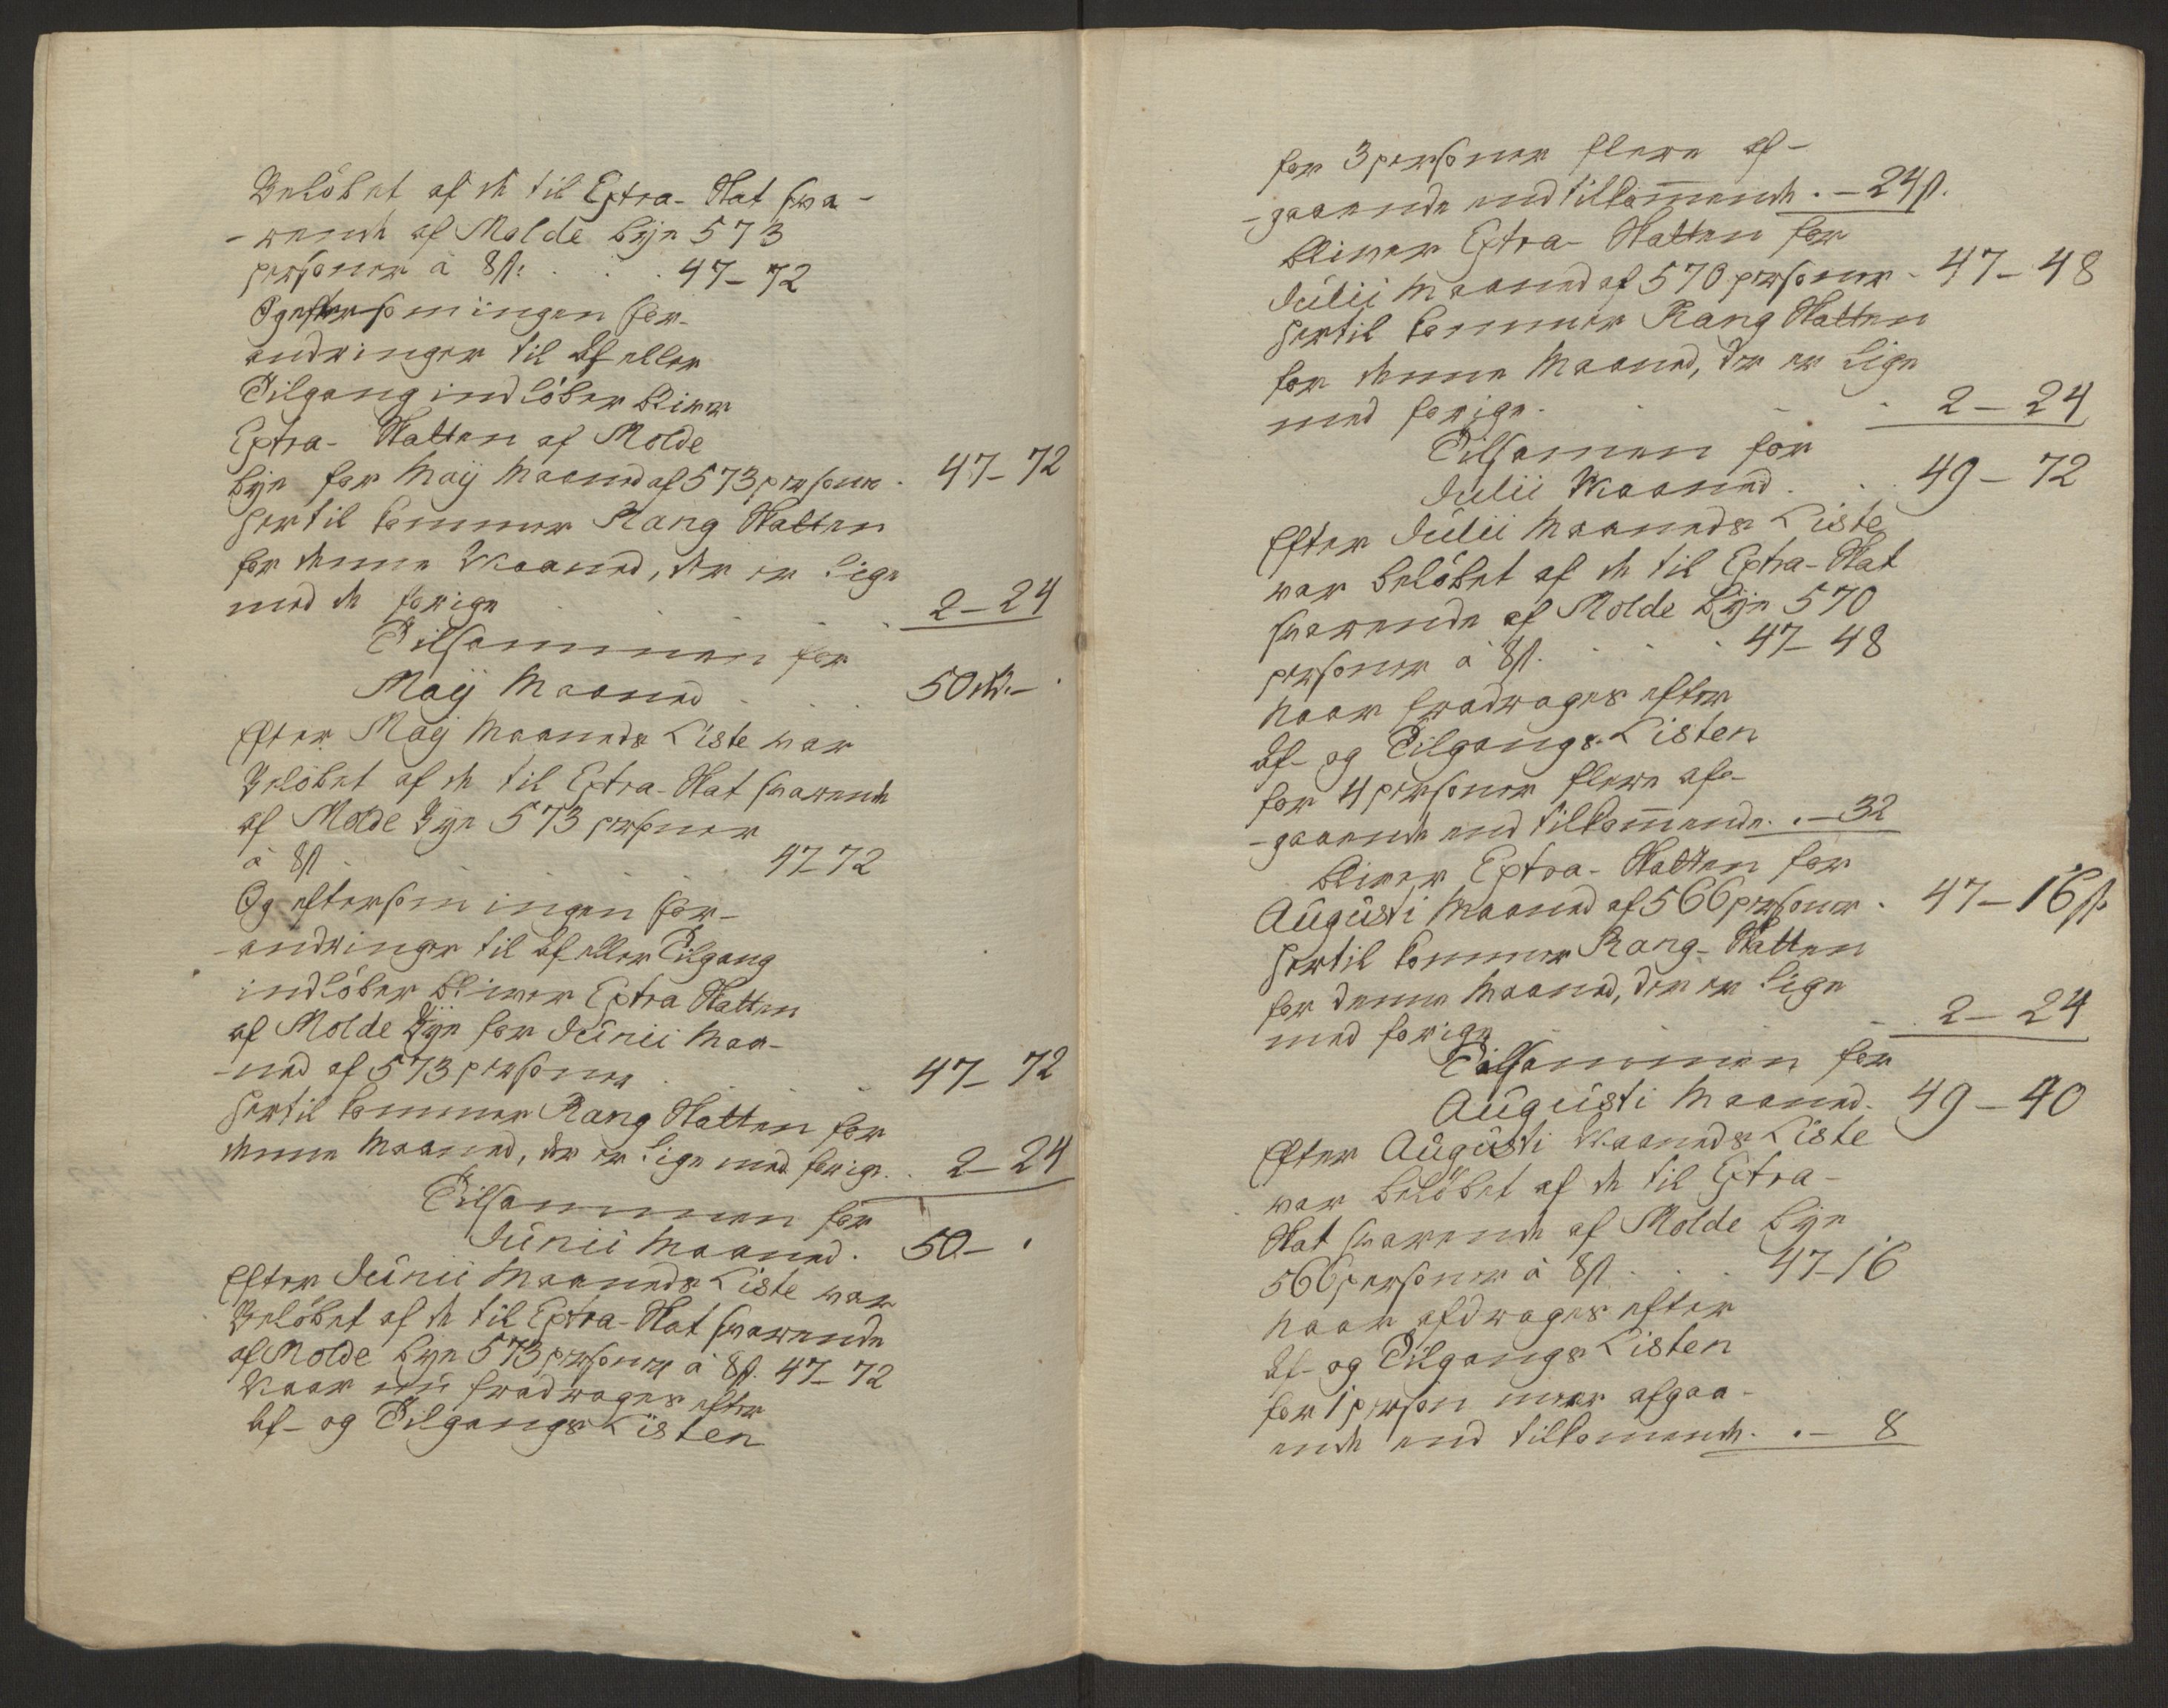 Belöbet af de til Extra-Skat sva-
-rende af Molde bye 573
personer à 8ß. . . 47-72
Og eftersom ingen for-
andringer til Af eller
Tilgang indlöber bliver
Extra-Skatten af Molde
bye for Maij Maaned af 573 personer. 47-72
hertil kommer Rang Skatten
for denne Maaned, der er lige
med de forige . . . 2-24
Tilsammen for
Maij Maaned . . . 50 rd. -
Efter Maij Maaneds Liste var
Belöbet af de til Extra-Skat svarende
af Molde Bye 573 personer
à 8ß . . . 47-72
Og eftersom ingen for-
-andringer til Af eller Tilgang
indlöber bliver Extra Skatten
af Molde Bye for Junii Maa-
-ned af 573 personer . . . 47-72
hertil kommer Rang Skatten for
denne Maaned, der er lige med forige. . 2-24
Tilsammen for
Junii Maaned. 50-
Efter Junii Maaneds Liste var
Belöbet af de til Extra-Skat svarende
af Molde bye 573 personer à 8ß. 47-72
Naar nu fradrages efter
Af- og Tilgangs Listen
for 3 personer flere af-
-gaaende end tilkom̅ende . -24ß.
bliver Extra-Skatten for
Julii Maaned af 570 personer - 47-48
hertil kommer Rang Skatten
for denne Maaned, der er lige
med forige. . . 2-24
Tilsamen for
Julii Maaned. . . 49-72
Efter Julii Maaneds Liste
var belöbet af de til Extra-Skat
svarende af Molde bye 570
personer à 8ß. . . . 47-48
naar fradrages efter
Af- og Tilgangs-Listen
for 4 personer flere af-
-gaaende end tilkom̅ende. . -32
bliver Extra-Skatten for
Augusti Maaned af 566 personer. 47-16ß.
hertil kommer Rang-Skatten
for denne Maaned, der er lige
med forige . . . 2-24
Tilsammen for
Augusti Maaned. 49-40
Efter Augusti Maaneds Liste
var belöbet af de til Extra-
Skat svarende af Molde bye
566 personer à 8ß. . . . 47-16
naar afdrages efter
Af- og Tilgangs Listen
for 1 person meer afgaa-
ende end tilkomende. . - 8